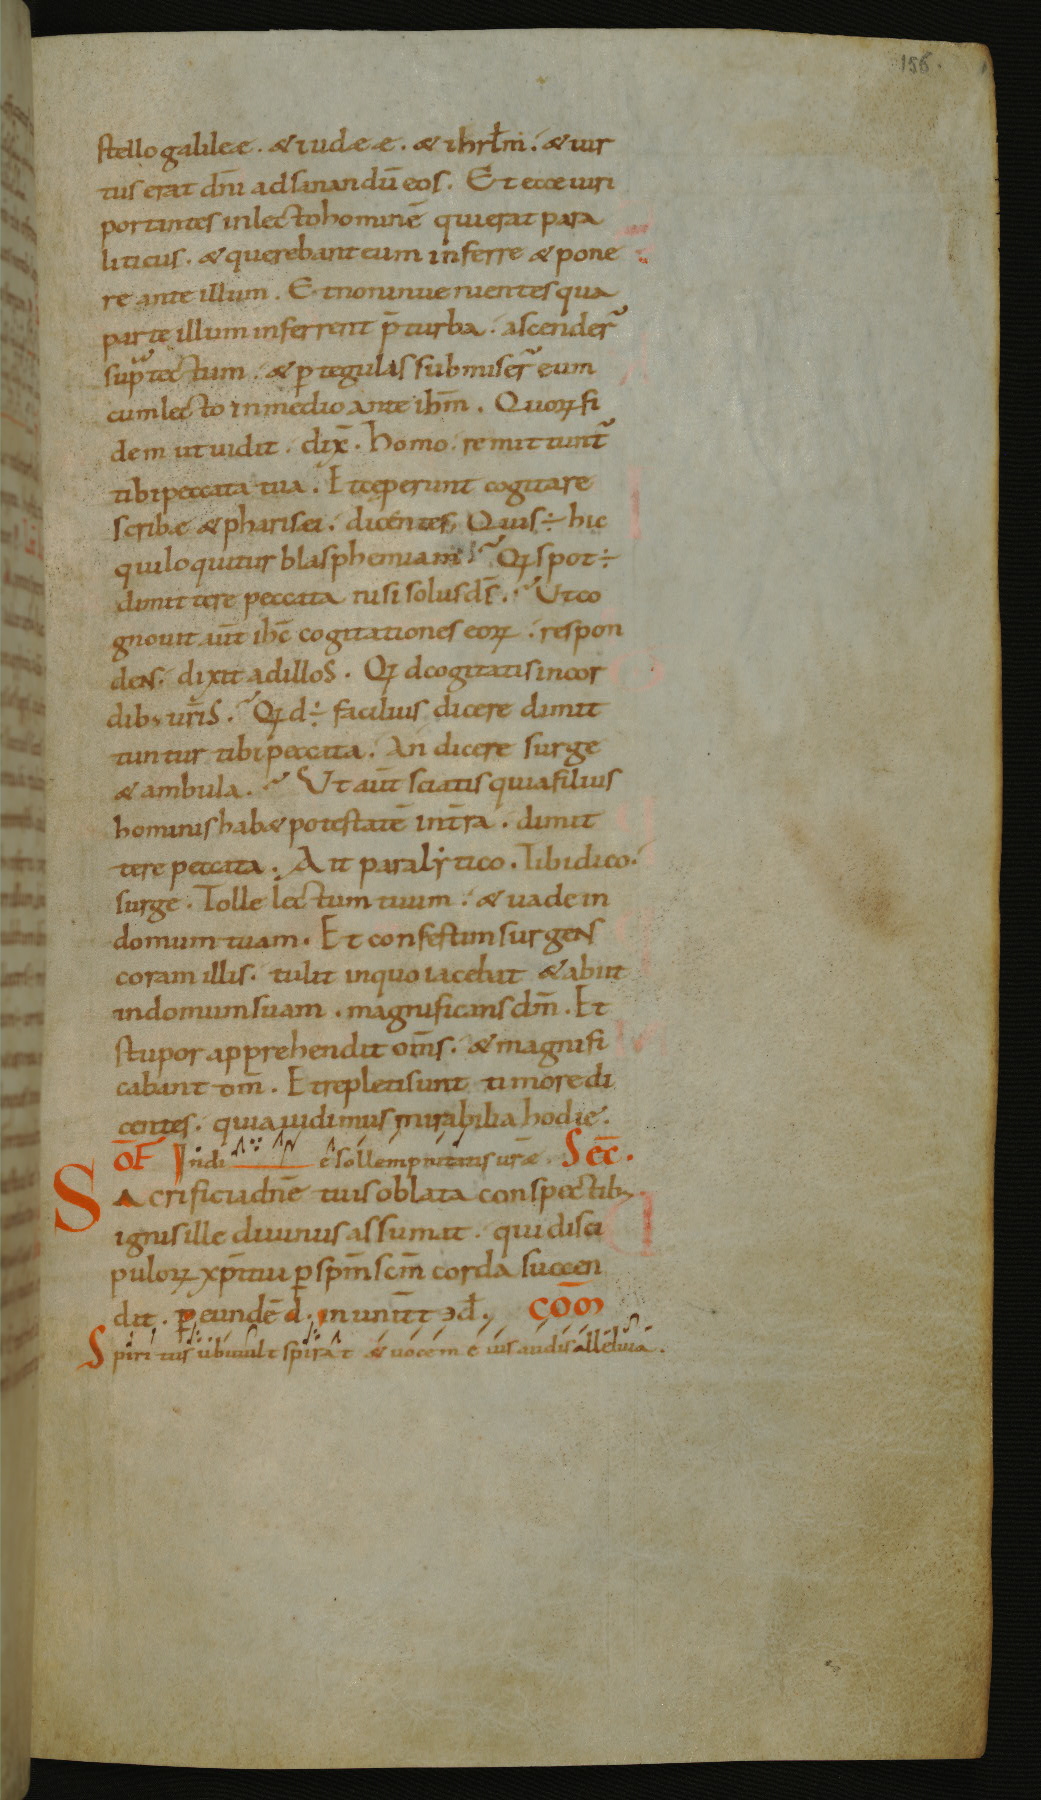 156.
stello galileę. & iudęę. & ihrłm. & uir
tus erat dn̄i ad sanandū eos. Et ecce uiri
portantes in lecto hominē qui erat para
liticus. & querebant eum inferre & pone
re ante illum. Et non inuenientes qua
parte illum inferrent p̄ turba. ascender̄
sup̄ tectum. & p tegulas submiser̄ eum
cum lecto in medio ante ihm̄. Quorꝝ fi
dem ut uidit. dix̄. homo. remittunt̄
tibi peccata tua. Et ceperunt cogitare
scribę & pharisei. dicentes. Quis ÷ hic
qui loquitur blasphemiam. Qꝫs pot ÷
dimittere peccata nisi solus ds̄. Ut co
gnouit aūt ihc̄ cogitationes eorꝝ. respon
dens. dixit ad illos. Qꝫd cogitatis in cor
dibꝫ ur̄is. Qꝫd ÷ facilius dicere dimit
tuntur tibi peccata. An dicere surge
& ambula. Ut aūt sciatis quia filius
hominis hab& potestatē in tr̄a. dimit
tere peccata. Ait paralytico. Tibi dico.
surge. Tolle lectum tuum. & uade in
domum tuam. Et confestim surgens
coram illis. tulit in quo iacebat & abiit
in domum suam. magnificans dm̄. Et
stupor apprehendit om̄s. & magnifi
cabant dm̄. Et repleti sunt timore di
centes. quia uidimus mirabilia hodie.
OF̄ Indi e sollempnitatis urę. SEC̄.
SAcrificia dn̄e tuis oblata conspectibꝫ
ignis ille diuinus assumat. qui disci
pulorꝝ xp̄i tui p sp̄m sc̄m corda succen
dit. p eundē d. in unit̄t ɔd. CŌM
Spiritus ubi uult spirat & uocem eius audis alleluia.